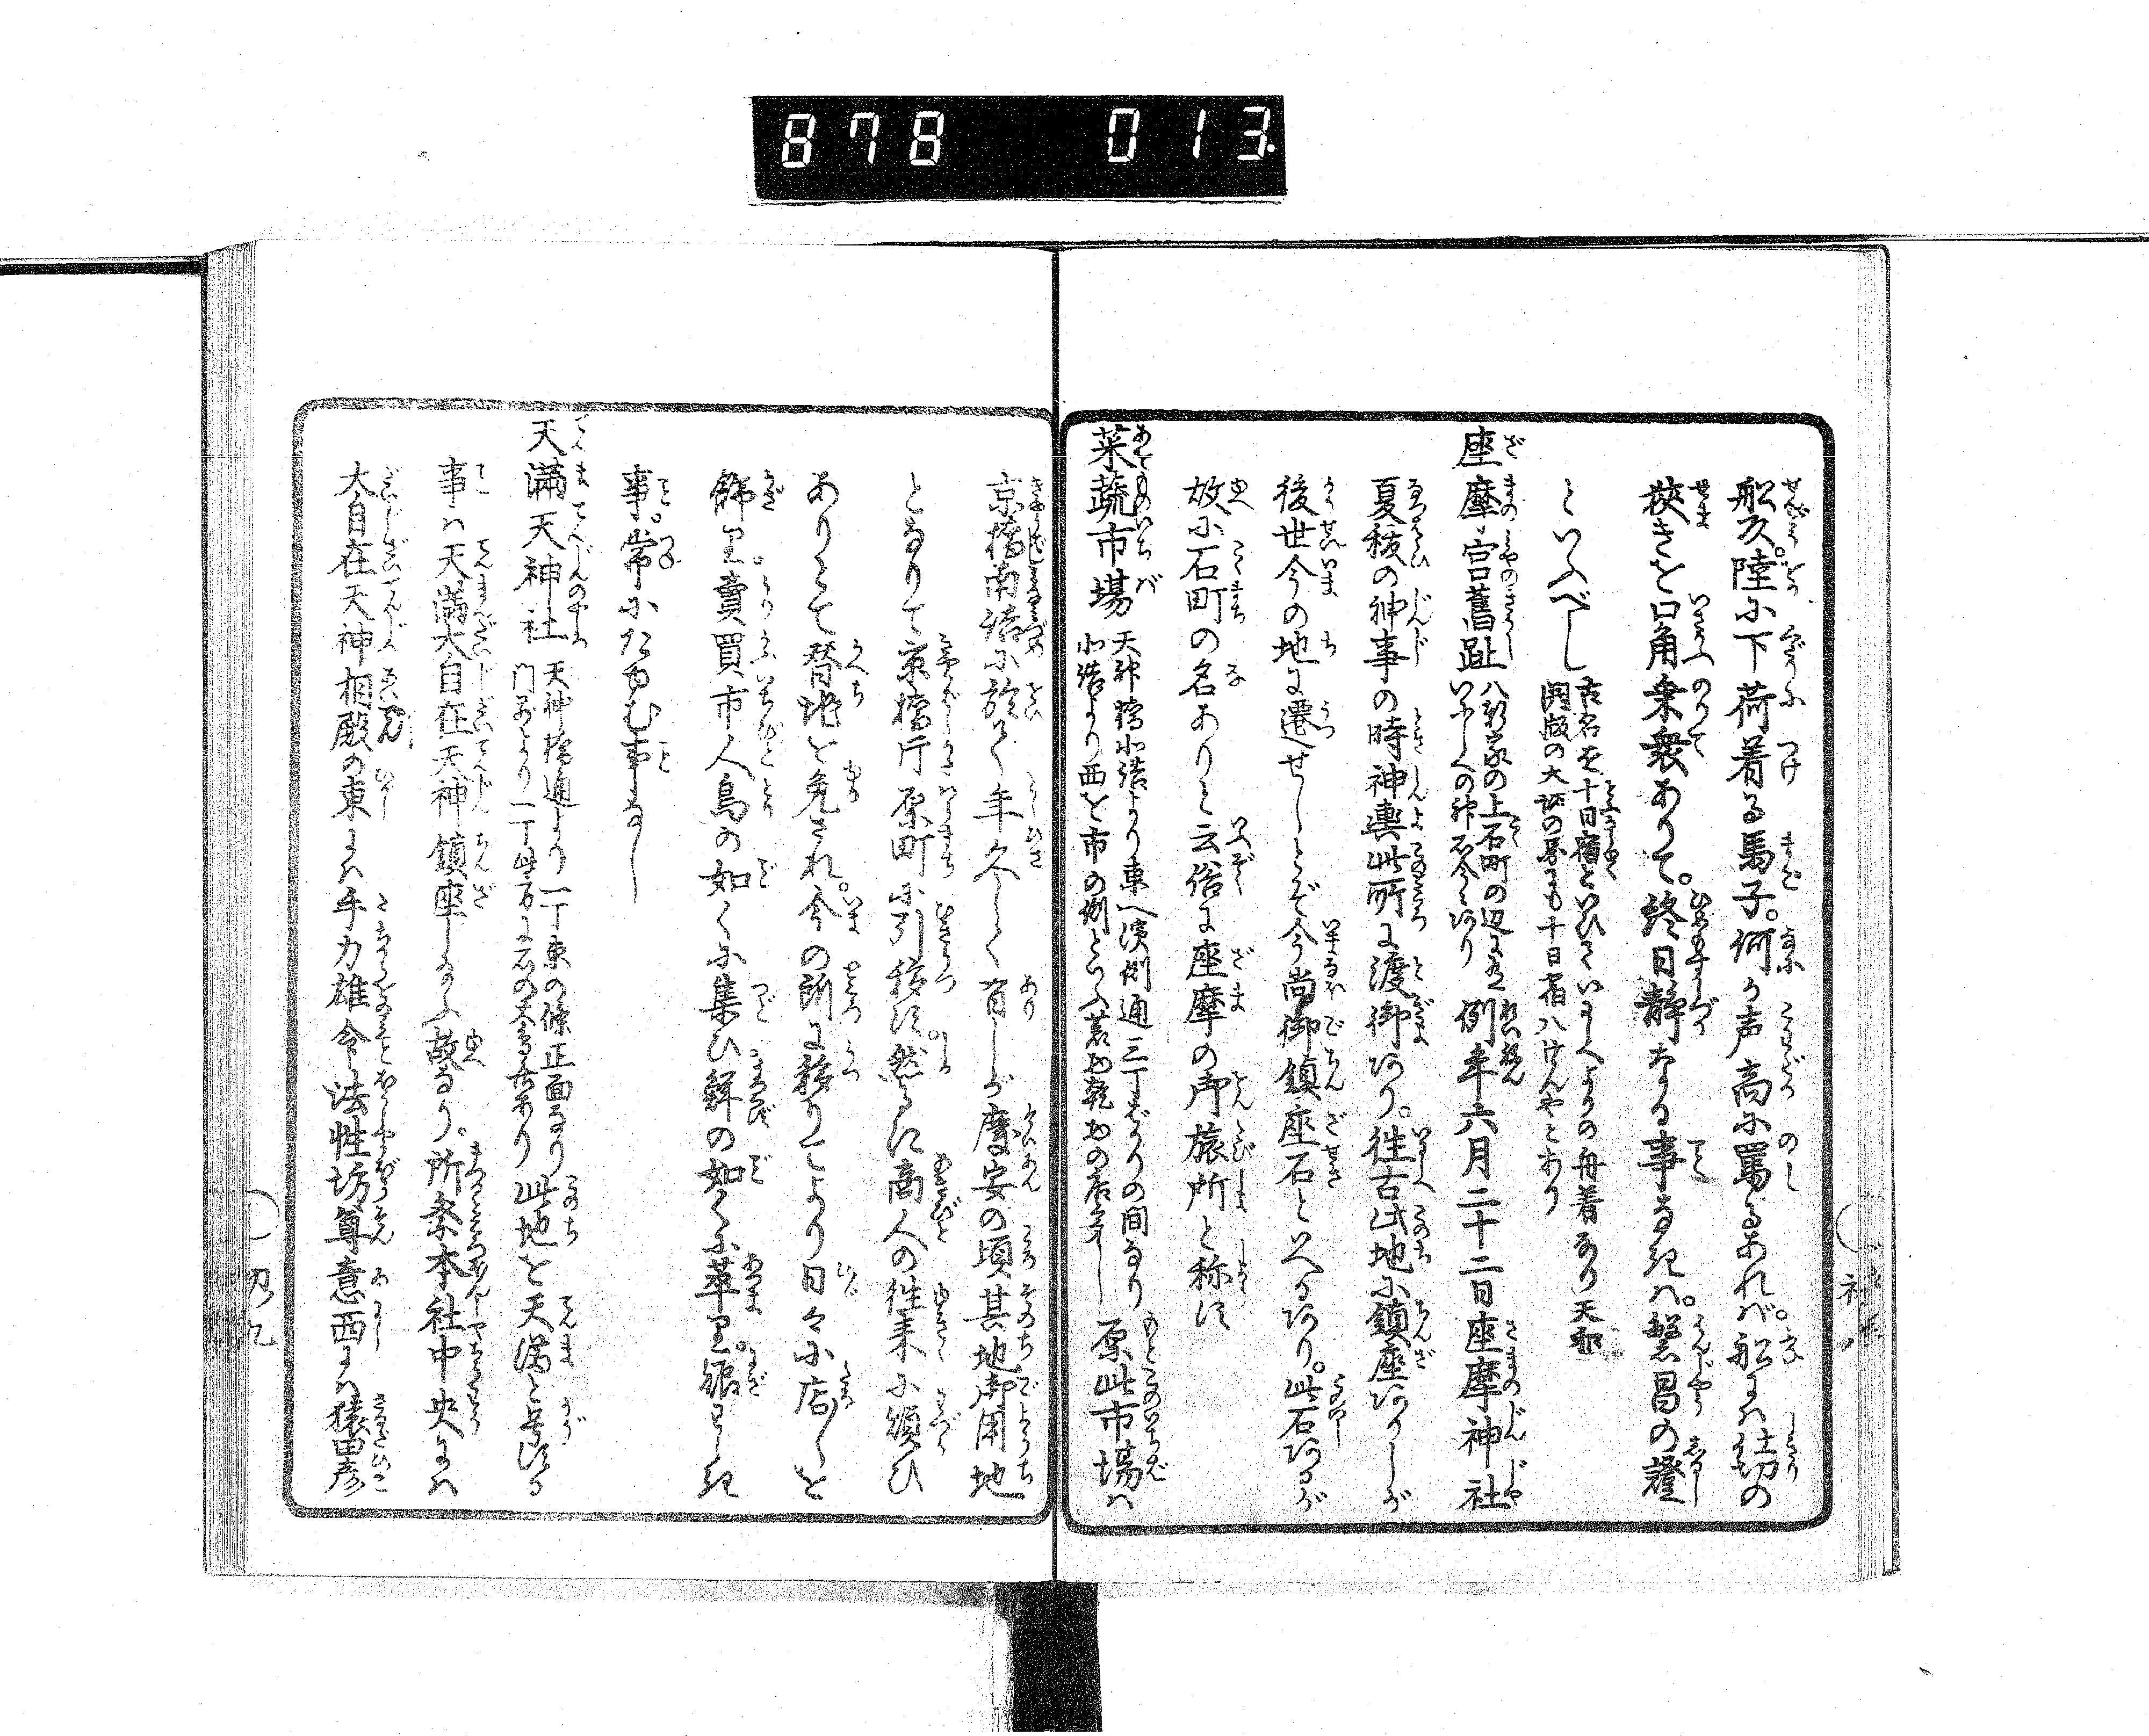 878 013
船及。陸に下荷着る馬子。何か声高に罵るあれば。船には土切の
狭きを口角乗衆ありて。終日静なる事なきは。繁昌の證
といふべし
古名を十日宿といひていにしへよりの舟着なり天和
開板の大坂の図にも十日宿八けんやとあり
座摩宮舊趾
八軒家の上石町の辺に有
いにしへの神石今にあり
例年六月二十二日座摩神社
夏秡の神事の時神輿此所に渡御あり。往古此地に鎮座ありしが
後世今の地に遷せしとぞ今尚御鎮座石といへるあり。此石あるが
故に石町の名ありと云俗に座摩の御旅所と称す
菜蔬市場
天神橋北詰より東へ濱側通三丁ばかりの間なり
北詰より西を市の側といふ荒物乾物の店多し
原此市場は
京橋南詰に於て年久しく有しが慶安の頃其地御用地
となりて京橋片原町に引移す。然るに商人の往来に煩ひ
ありとて替地を免され。今の所に移りてより日々に店々を
餝り。賣買市人鳥の如くに集ひ鮮の如くに萃り。賑はしき
事。常にたゆむ事なし
天満天神社
天神橋通より一丁東の條正面なり
門前より一丁此方に石の大鳥居あり
此地を天満と号る
事は天満大自在天神鎮座し給ふ故なり。所祭本社中央には
大自在天神相殿の東には手力雄命法性坊尊意西には猿田彦